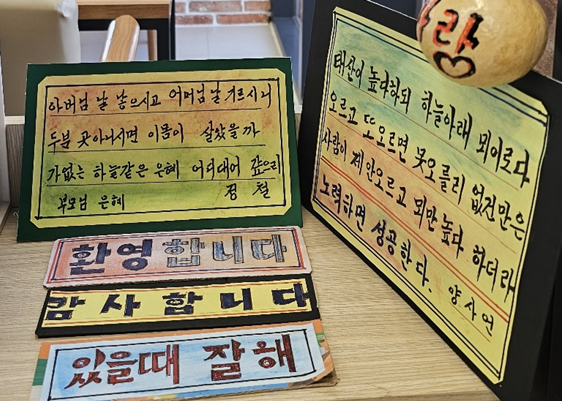 아버님 날 낳으시고 어머님 날 기르시니
두분 곳 아니시면 이몸이 살았을까
가없는 하늘같은 은혜 어디대어 갚으리
부모님 은혜 정철
환영합니다
감사합니다
있을때 잘해
랑
태산이 높다하되 하늘아래 뫼이로다
오르고 또 오르면 못오를리 없건만은
사람이 제 안오르고 뫼만 높다 하더라
노력하면 성공한다. 양사언